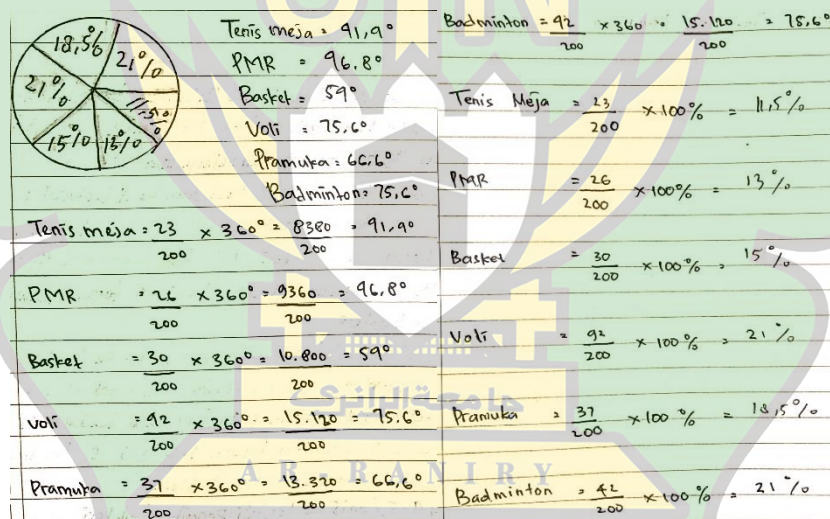 18,5%
21%
21%
11,5%
15%
13%
Tenis meja = 91,9°
PMR = 96.8°
Basket = 59°
Voli = 75,6°
Pramuka = 66,6°
Badminton = 75,6°
Tenis meja = 23/200 × 360° = 8380/200 = 91,9°
PMR = 26/200 × 360° = 9360/200 = 96.8°
Basket = 30/200 × 360° = 10.800/200 = 59°
Voli = 92/200 × 360° = 15.120/200 = 75.6°
Pramuka = 37/200 × 360° = 13.320/200 = 66,6°
Badminton = 92/200 × 360 = 15.120/200 = 75,6°
Tenis Meja = 23/200 × 100% = 11,5%
PMR = 26/200 × 100% = 13%
Basket = 30/200 × 100% = 15%
Voli = 92/200 × 100% = 21%
Pramuka = 37/200 × 100% = 18,5%
Badminton = 42/200 × 100% = 21%
جامعة الرانري
AR-RANIRY